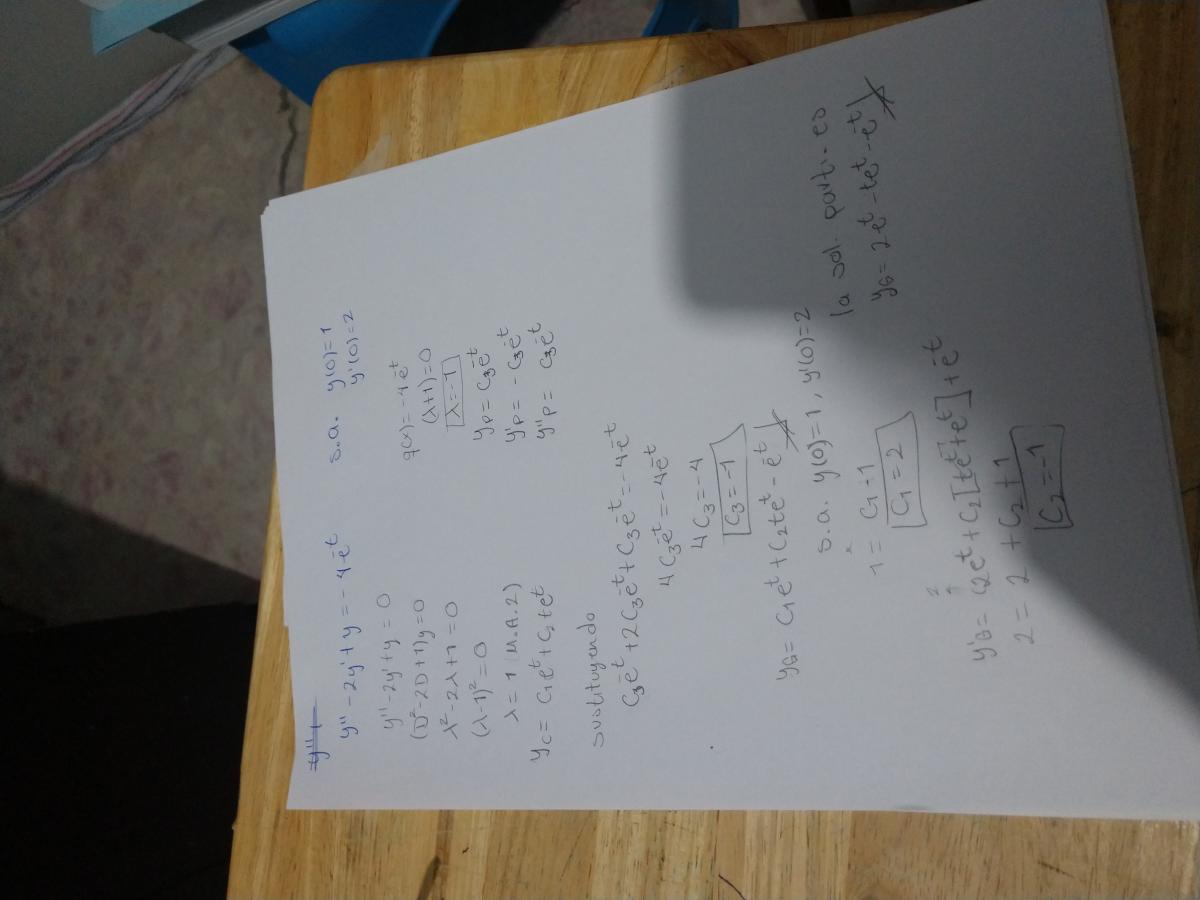 y''-2y'+y=-4e^-t    s.a.   y(0)=1
y'(0)=2
y''-2y'+y=0
(D²-2D+1)y=0
λ²-2λ+1=0
(λ-1)²=0
λ=1 (M.A.2)
yc= C₁e^t+C₂te^t
q(x)=-4e^-t
(λ+1)=0
λ=-1
yp=C₃e^-t
y'p=-C₃e^-t
y''p= C₃e^-t
sustituyendo
C₃e^-t+2C₃e^-t+C₃e^-t=-4e^-t
4C₃e^-t=-4e^-t
4C₃=-4
C₃=-1
yG= C₁e^t+C₂te^t-e^-t
s.a. y(0)=1, y'(0)=2
1= C₁-1
C₁=2
y'G= 2e^t+C₂[te^t+e^t]+e^-t
2= 2+C₂+1
C₂=-1
la sol. parti. es
yG= 2e^t-te^t-e^-t